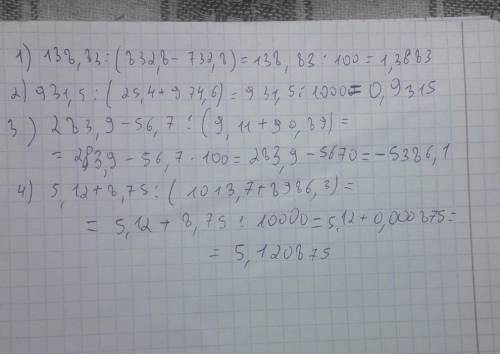 1) 138,83 : (832,8 - 732,8) = 138,83 : 100 = 1,3883
2) 931,5 : (25,4 + 974,6) = 931,5 : 1000 = 0,9315
3) 283,9 - 56,7 : (9,11 + 90,89) =
= 283,9 - 56,7 · 100 = 283,9 - 5670 = -5386,1
4) 5,12 + 8,75 : (1013,7 + 8986,3) =
= 5,12 + 8,75 : 10000 = 5,12 + 0,000875 =
= 5,120875